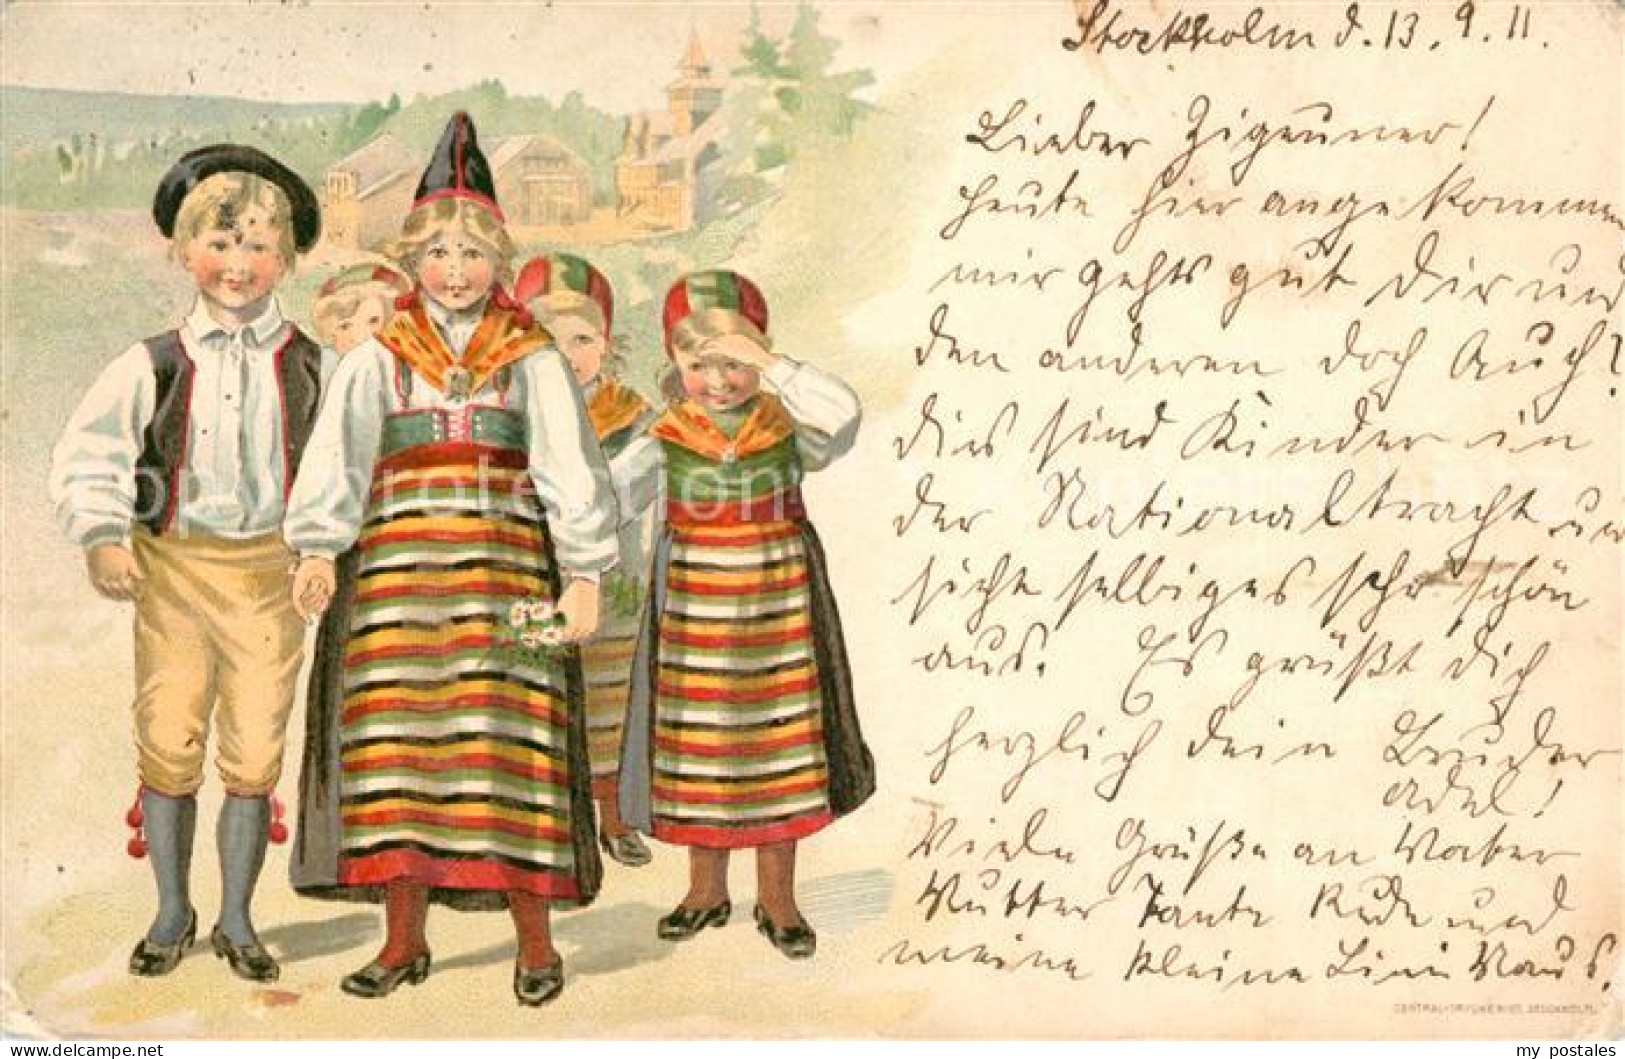 Stockholm d. 13. 9. 11.
Lieber Zigeuner!
heute hier angekommen
mir gehts gut Dir und
den anderen doch Auch?
dies sind Kinder in
der Nationaltracht und
siehe selbiges sehr schön
aus. Es grüßt Dich
herzlich dein Bruder
Viele Grüße an Vater
Mutter Tante und
meine kleine Maus.
CENTRAL-TRYCKERIET, STOCKHOLM.
my postales